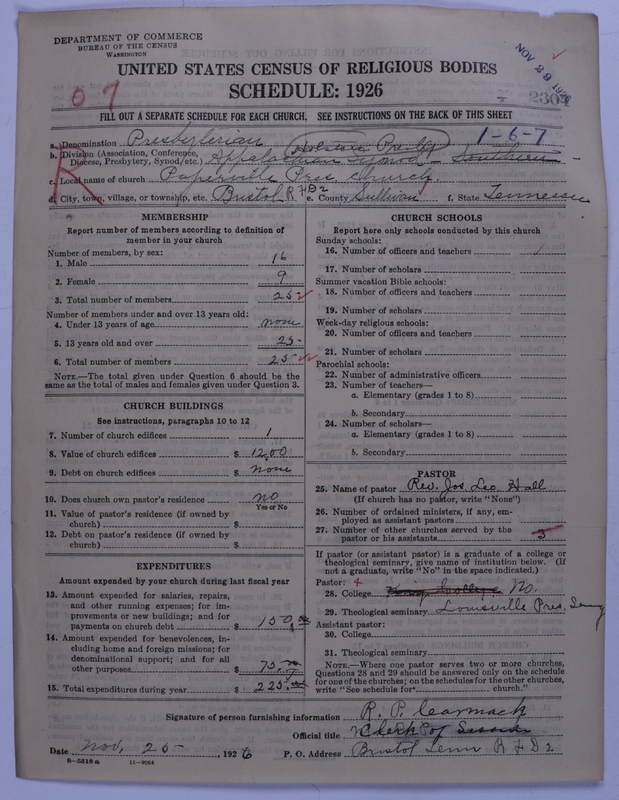 DEPARTMENT OF COMMERCE
BUREAU OF THE CENSUS
WASHINGTON
NOV 29 1926
2304
UNITED STATES CENSUS OF RELIGIOUS BODIES
SCHEDULE: 1926
07
FILL OUT A SEPARATE SCHEDULE FOR EACH CHURCH, SEE INSTRUCTIONS ON THE BACK OF THIS SHEET
R
a. Denomination Presbyterian Holston Presby 1-6-7
b. Division (Association, Conference, Diocese, Presbytery, Synod/etc.) Appalachian Synod - Southern -
c. Local name of church Paperville Pres. Church
d. City, town, village, or township, etc. Bristol R F D 2 e. County Sullivan f. State Tennessee
MEMBERSHIP
Report number of members according to definition of
member in your church
Number of members, by sex:
1. Male 16
2. Female 9
3. Total number of members 25
Number of members under and over 13 years old:
4. Under 13 years of age none
5. 13 years old and over 25
6. Total number of members 25
NOTE.—The total given under Question 6 should be the
same as the total of males and females given under Question 3.
CHURCH BUILDINGS
See instructions, paragraphs 10 to 12
7. Number of church edifices 1
8. Value of church edifices $ 1200
9. Debt on church edifices $ none
10. Does church own pastor's residence No
Yes or No
11. Value of pastor's residence (if owned by
church) $
12. Debt on pastor's residence (if owned by
church) $
EXPENDITURES
Amount expended by your church during last fiscal year
13. Amount expended for salaries, repairs,
and other running expenses; for im-
provements or new buildings; and for
payments on church debt $ 150.00
14. Amount expended for benevolences, in-
cluding home and foreign missions; for
denominational support; and for all
other purposes $ 75.
15. Total expenditures during year $ 225.
CHURCH SCHOOLS
Report here only schools conducted by this church
Sunday schools:
16. Number of officers and teachers
17. Number of scholars
Summer vacation Bible schools:
18. Number of officers and teachers
19. Number of scholars
Week-day religious schools:
20. Number of officers and teachers
21. Number of scholars
Parochial schools:
22. Number of administrative officers
23. Number of teachers—
a. Elementary (grades 1 to 8)
b. Secondary
24. Number of scholars—
a. Elementary (grades 1 to 8)
b. Secondary
PASTOR
25. Name of pastor Rev. Jos. Leo. Hall
(If church has no pastor, write "None")
26. Number of ordained ministers, if any, em-
ployed as assistant pastors
27. Number of other churches served by the
pastor or his assistants 3
If pastor (or assistant pastor) is a graduate of a college or
theological seminary, give name of institution below. (If
not a graduate, write "No" in the space indicated.)
Pastor: 4
28. College King College No.
29. Theological seminary Louisville Pres. Semy
Assistant pastor:
30. College
31. Theological seminary
NOTE.—Where one pastor serves two or more churches,
Questions 28 and 29 should be answered only on the schedule
for one of the churches; on the schedules for the other churches,
write "See schedule for church."
Signature of person furnishing information R. P. Carmack
Official title Clerk of Session
Date Nov, 25 , 1926 P. O. Address Bristol Tenn R F D 2
8—5518 a 11—9064